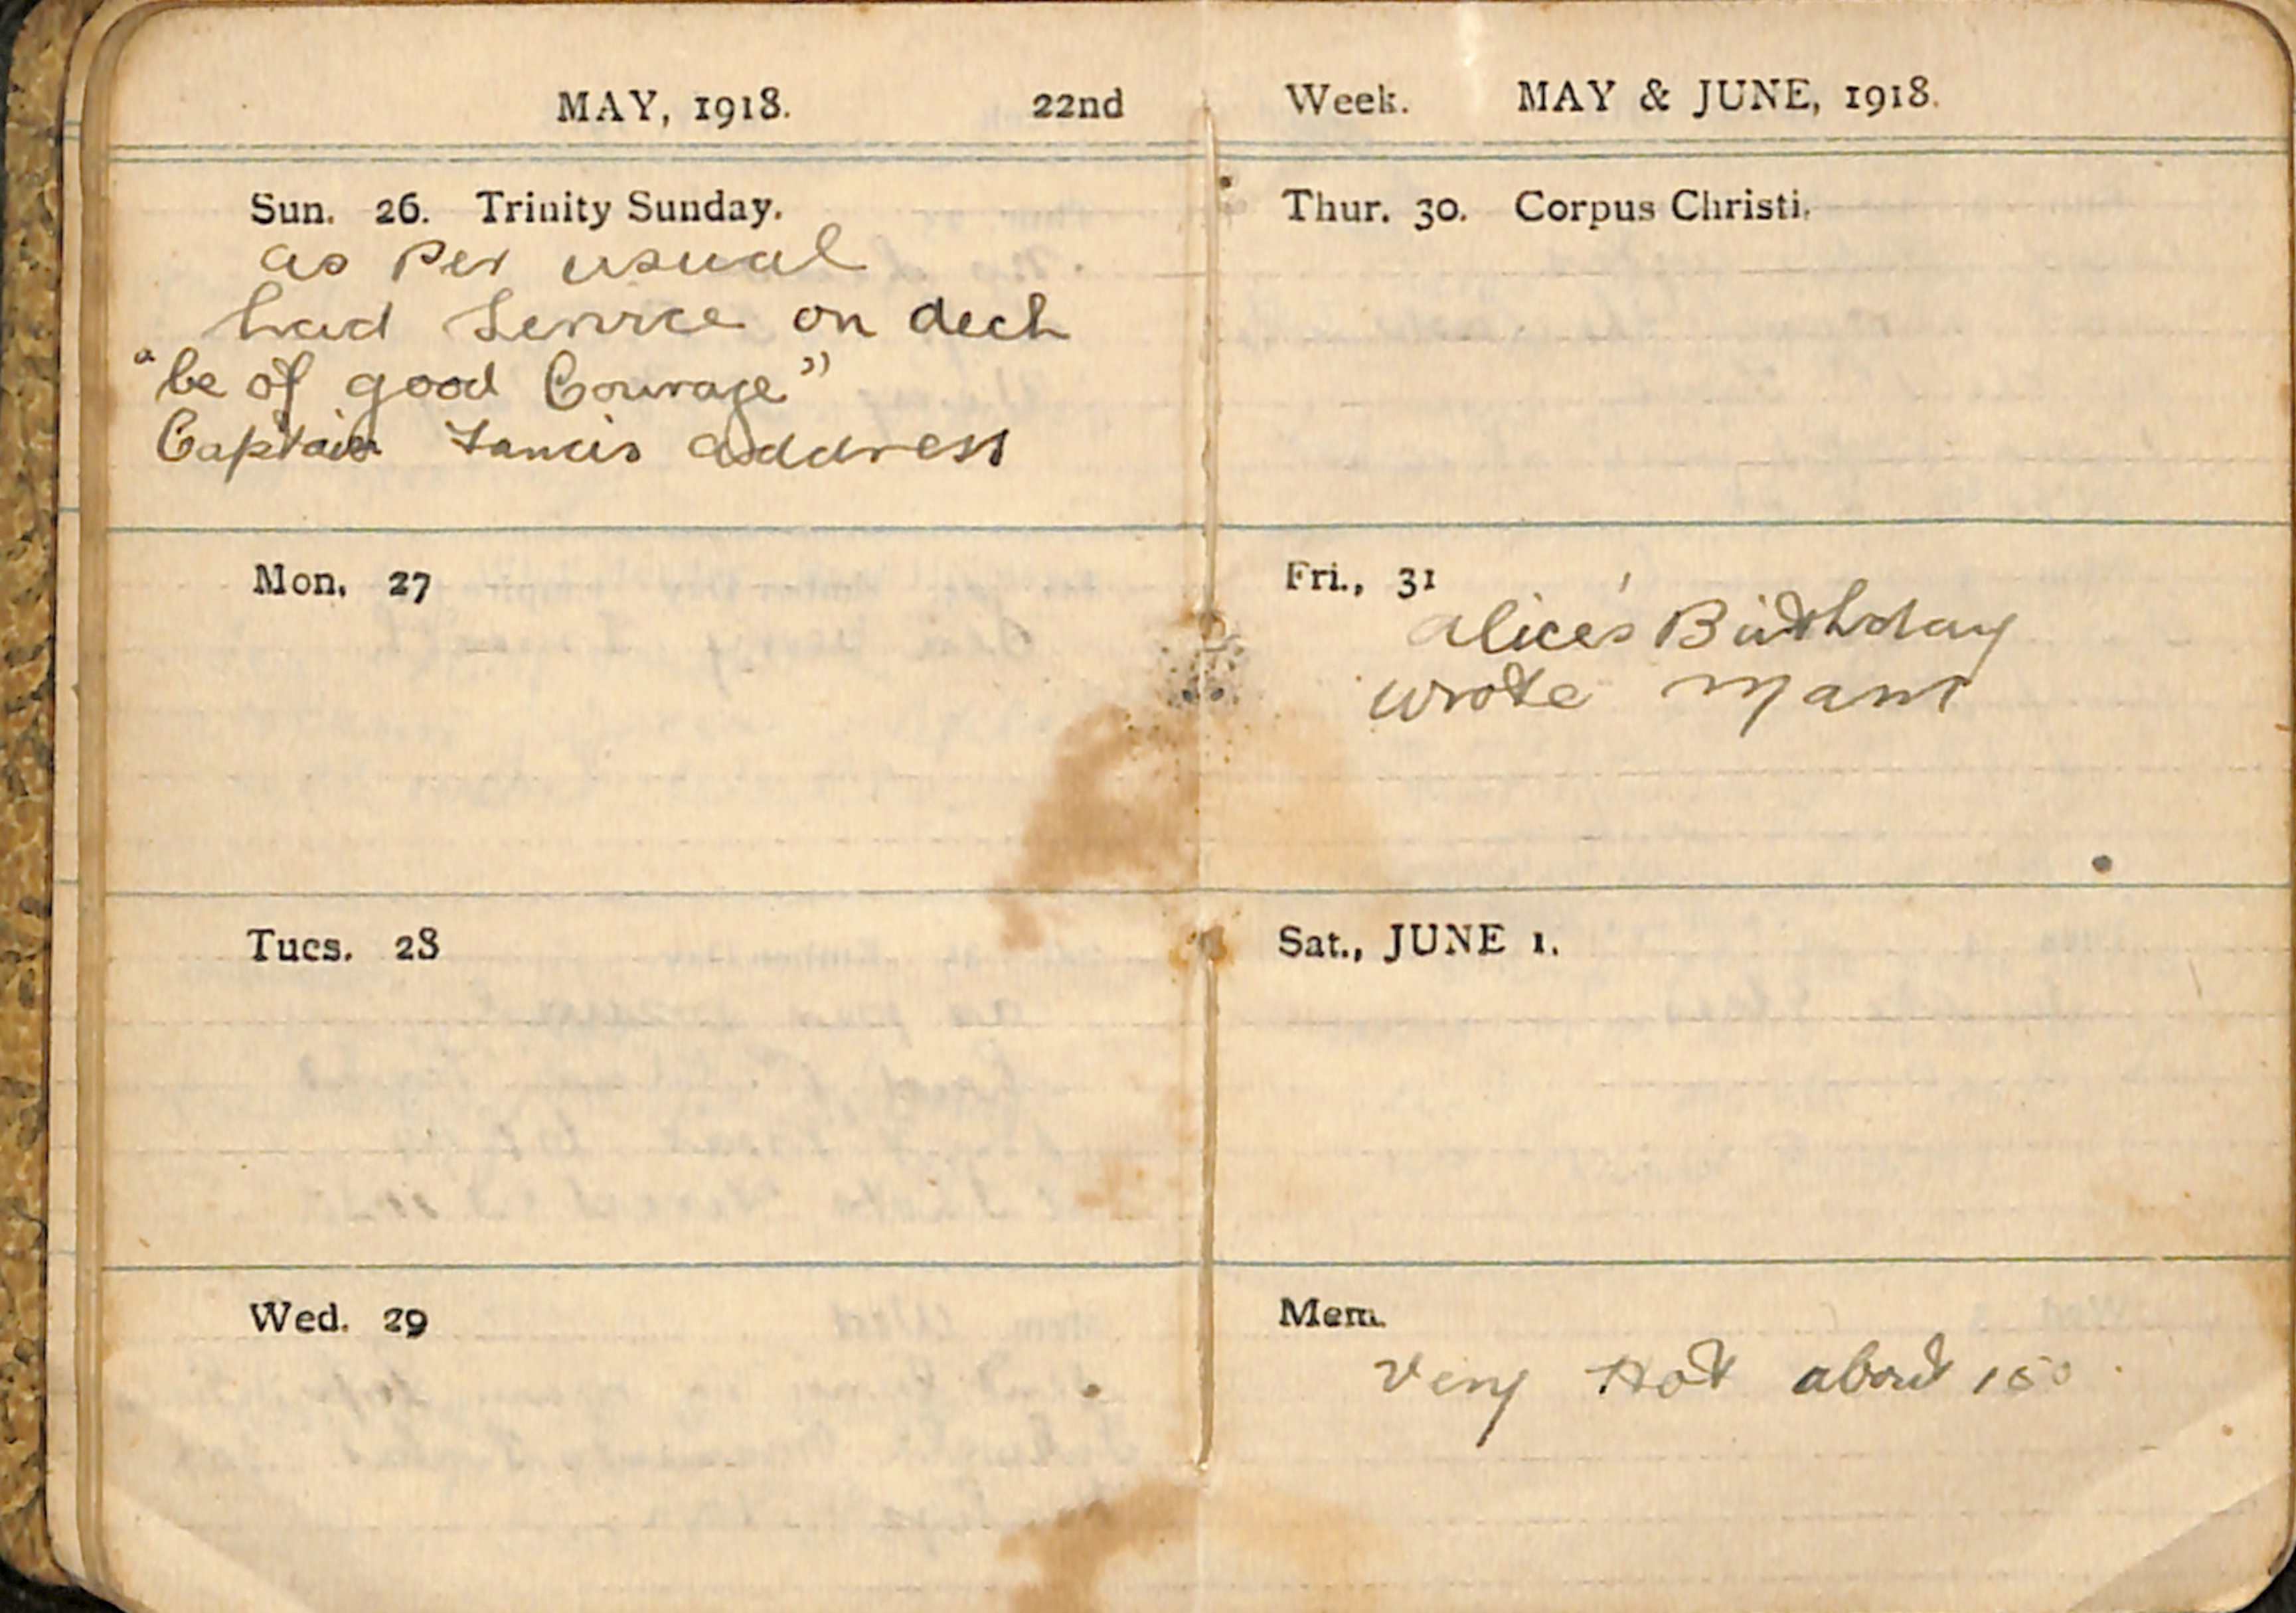 MAY, 1918. 22nd
Sun. 26. Trinity Sunday.
as Per usual
had Service on deck
"be of good Courage"
Captain address
Mon. 27
Tues. 28
Wed. 29
Week. MAY & JUNE, 1918.
Thur. 30. Corpus Christi.
Fri., 31
alice's Birthday
wrote Mam
Sat., JUNE 1.
Mem.
Very Hot about